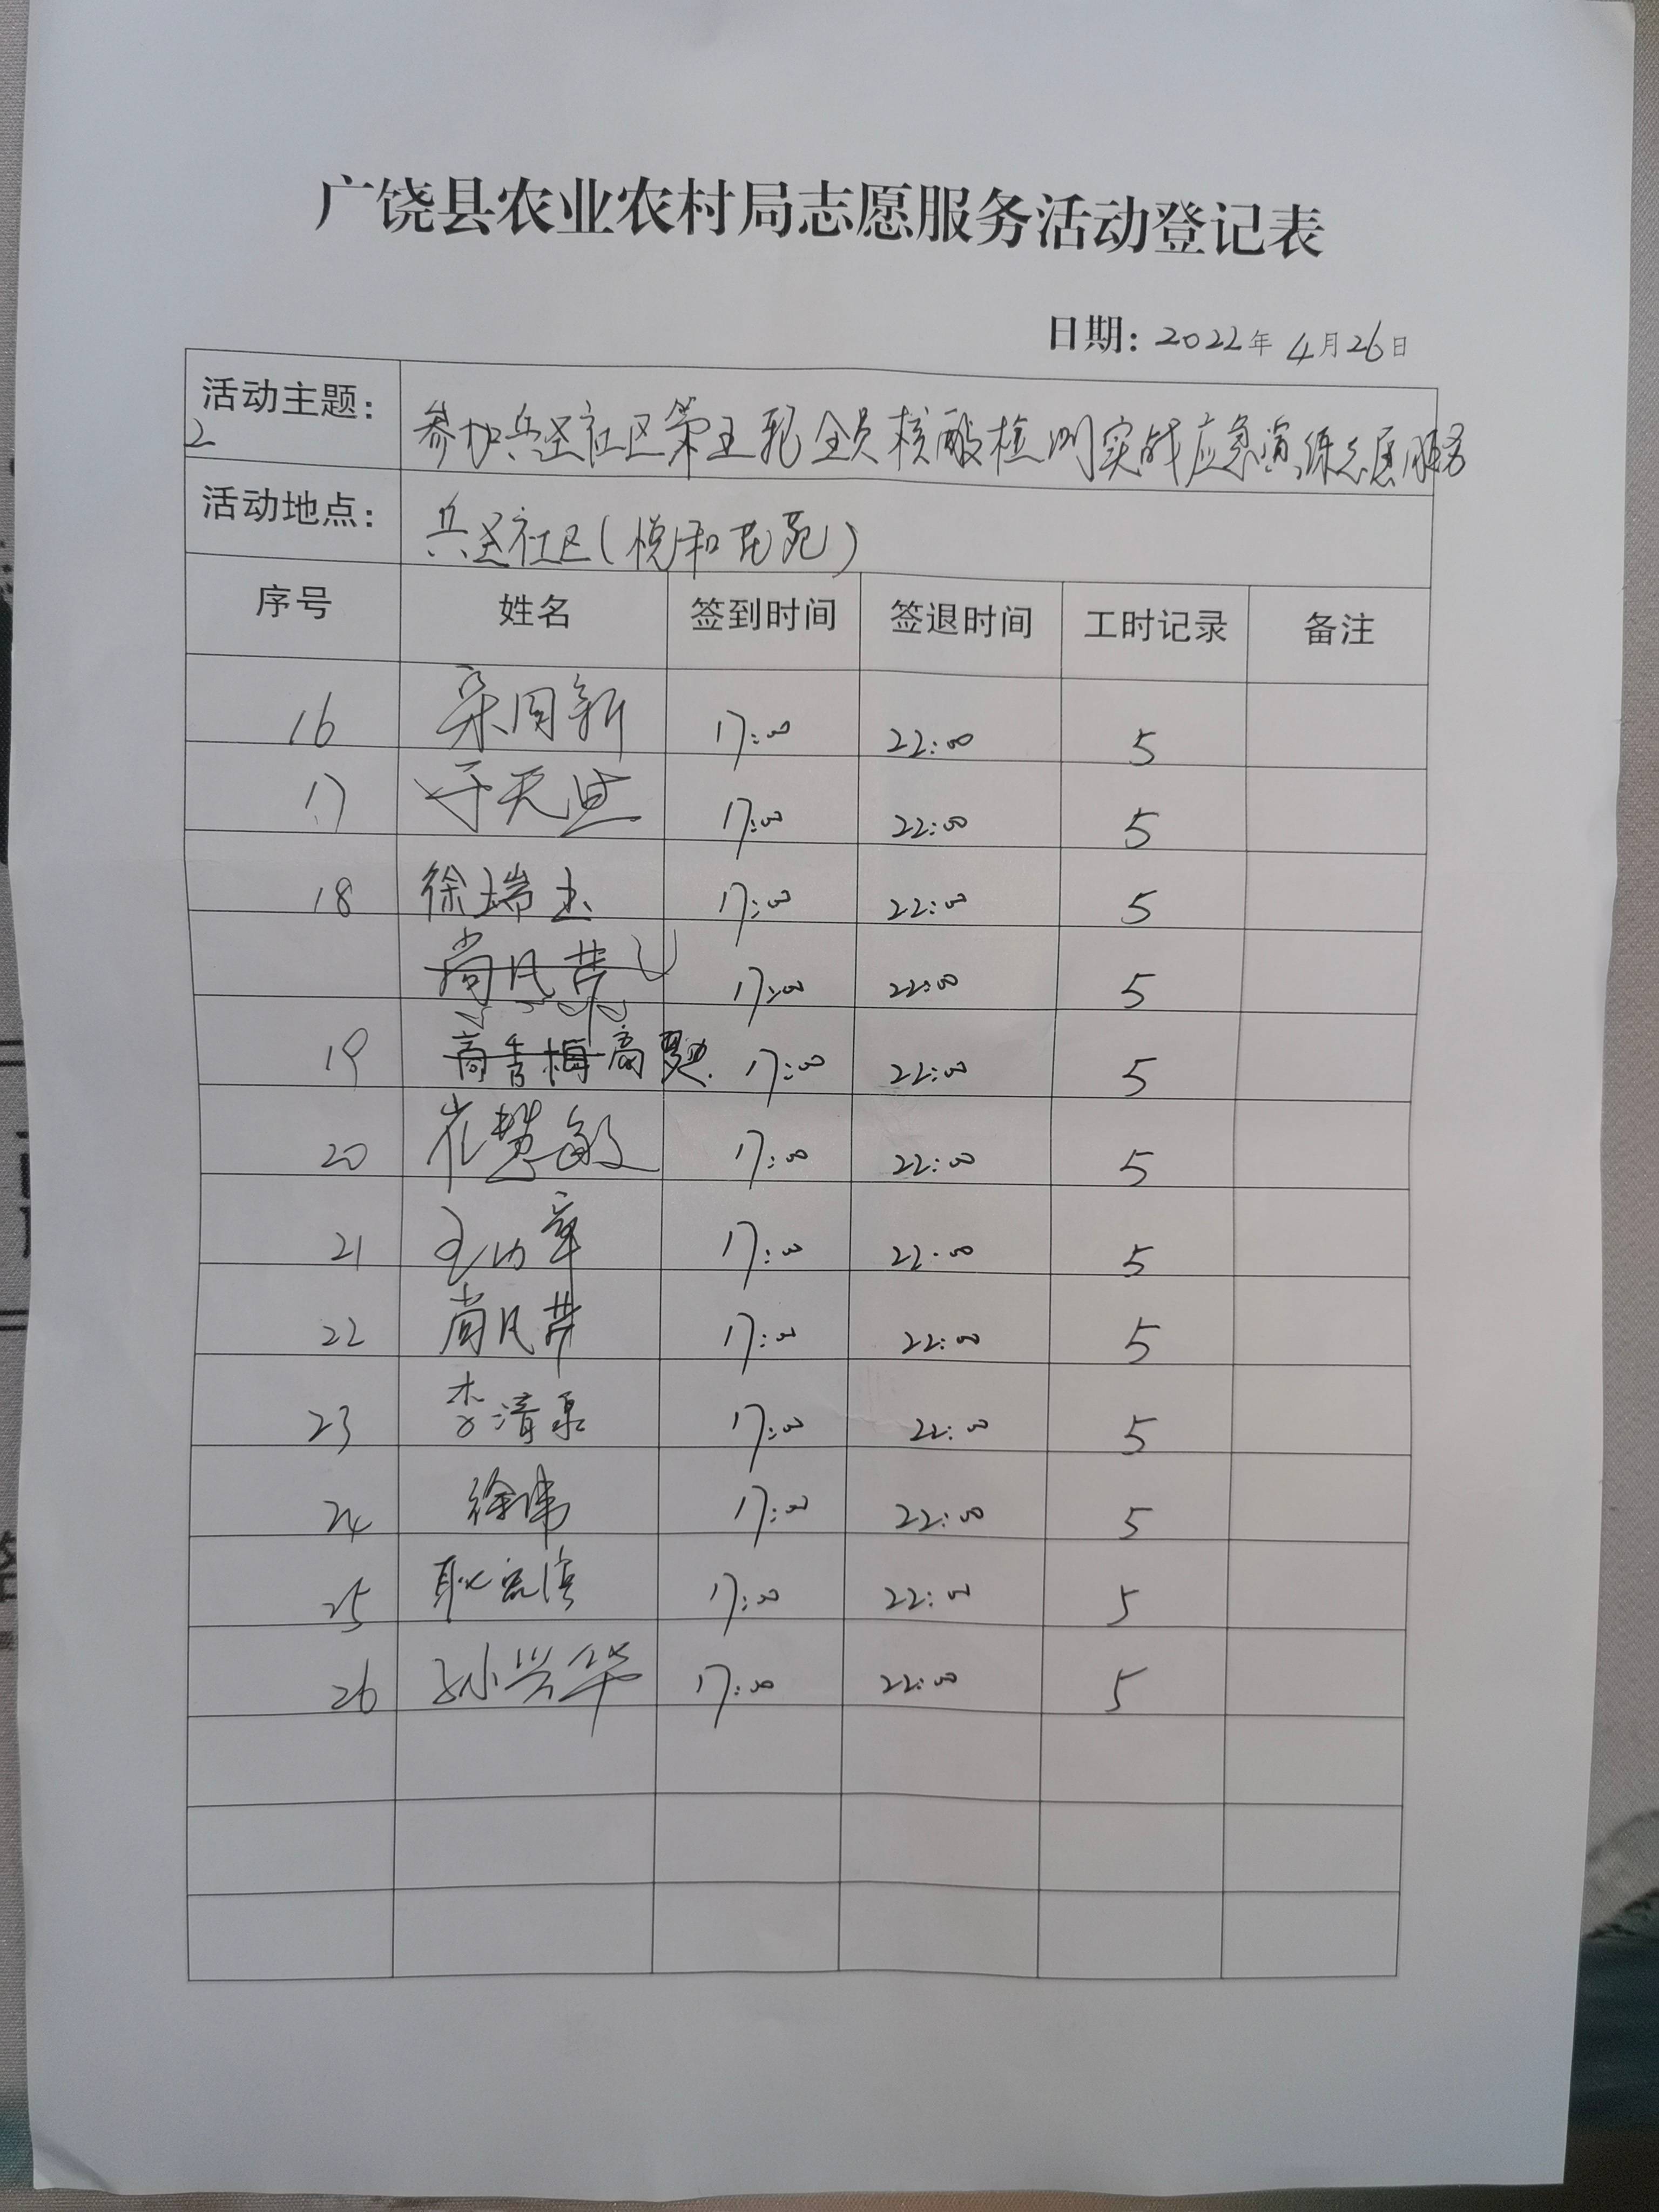 广饶县农业农村局志愿服务活动登记表
日期：2022年 4月26日
活动主题： 参加兵圣社区第五轮全员核酸检测实战应急演练志愿服务
2
活动地点： 兵圣社区（悦和花苑）
序号 姓名 签到时间 签退时间 工时记录 备注
16 新 17:00 22:00 5
17 于天 17:00 22:00 5
18 徐瑞玉 17:00 22:00 5
尚凤芹 17:00 22:00 5
19 高秀梅 高 17:00 22:00 5
20 崔慧敏 17:00 22:00 5
21 王功章 17:00 22:00 5
22 尚凤芹 17:00 22:00 5
23 李清泉 17:00 22:00 5
24 徐伟 17:00 22:00 5
25 耿 17:00 22:00 5
26 孙兴华 17:00 22:00 5